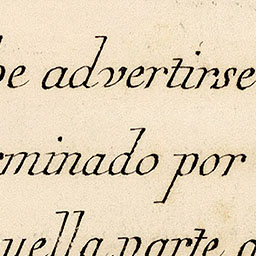 be advertirse
rminado por
uella parte